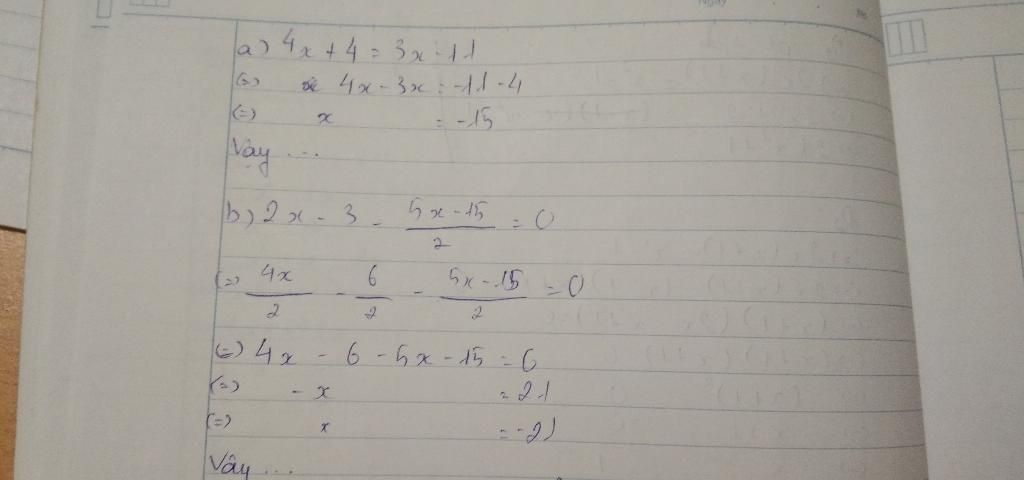 Ngày
a) 4x + 4 = 3x - 11
(=) 4x - 3x = -11 - 4
(=) x = -15
Vậy ...
b) 2x - 3 - \frac{5x - 15}{2} = 0
(=) \frac{4x}{2} - \frac{6}{2} - \frac{5x - 15}{2} = 0
(=) 4x - 6 - 5x - 15 = 0
(=) - x = 21
(=) x = -21
Vây ...